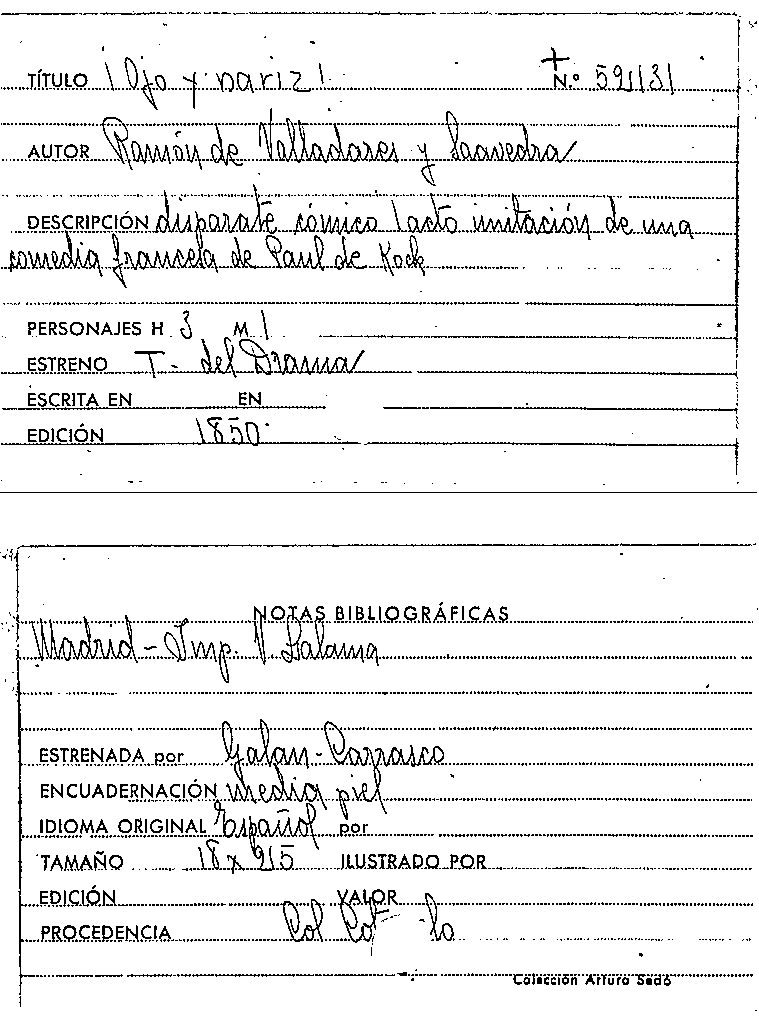 TÍTULO ¡Ojo y nariz! N.º 59131
AUTOR Ramón de Valladares y Saavedra
DESCRIPCIÓN disparate cómico 1 acto imitación de una
comedia francesa de Paul de Kock
PERSONAJES H 3 M 1
ESTRENO T. del Drama
ESCRITA EN EN
EDICIÓN 1850
NOTAS BIBLIOGRÁFICAS
Madrid - Imp. V. Lalama
ESTRENADA por Galan - Carrasco
ENCUADERNACIÓN media piel
IDIOMA ORIGINAL Español por
TAMAÑO 18 x
ILUSTRADO POR
EDICIÓN VALOR
PROCEDENCIA Col
Colección Arturo Sedó